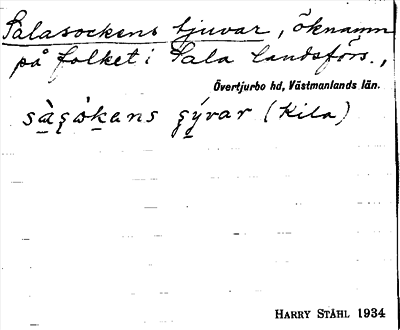 Salasockens tjuvar, öknamn
på folket i Sala landsförs.,
Övertjurbo hd, Västmanlands län.
sàsòkans şývar (Kila)
HARRY STÅHL 1934